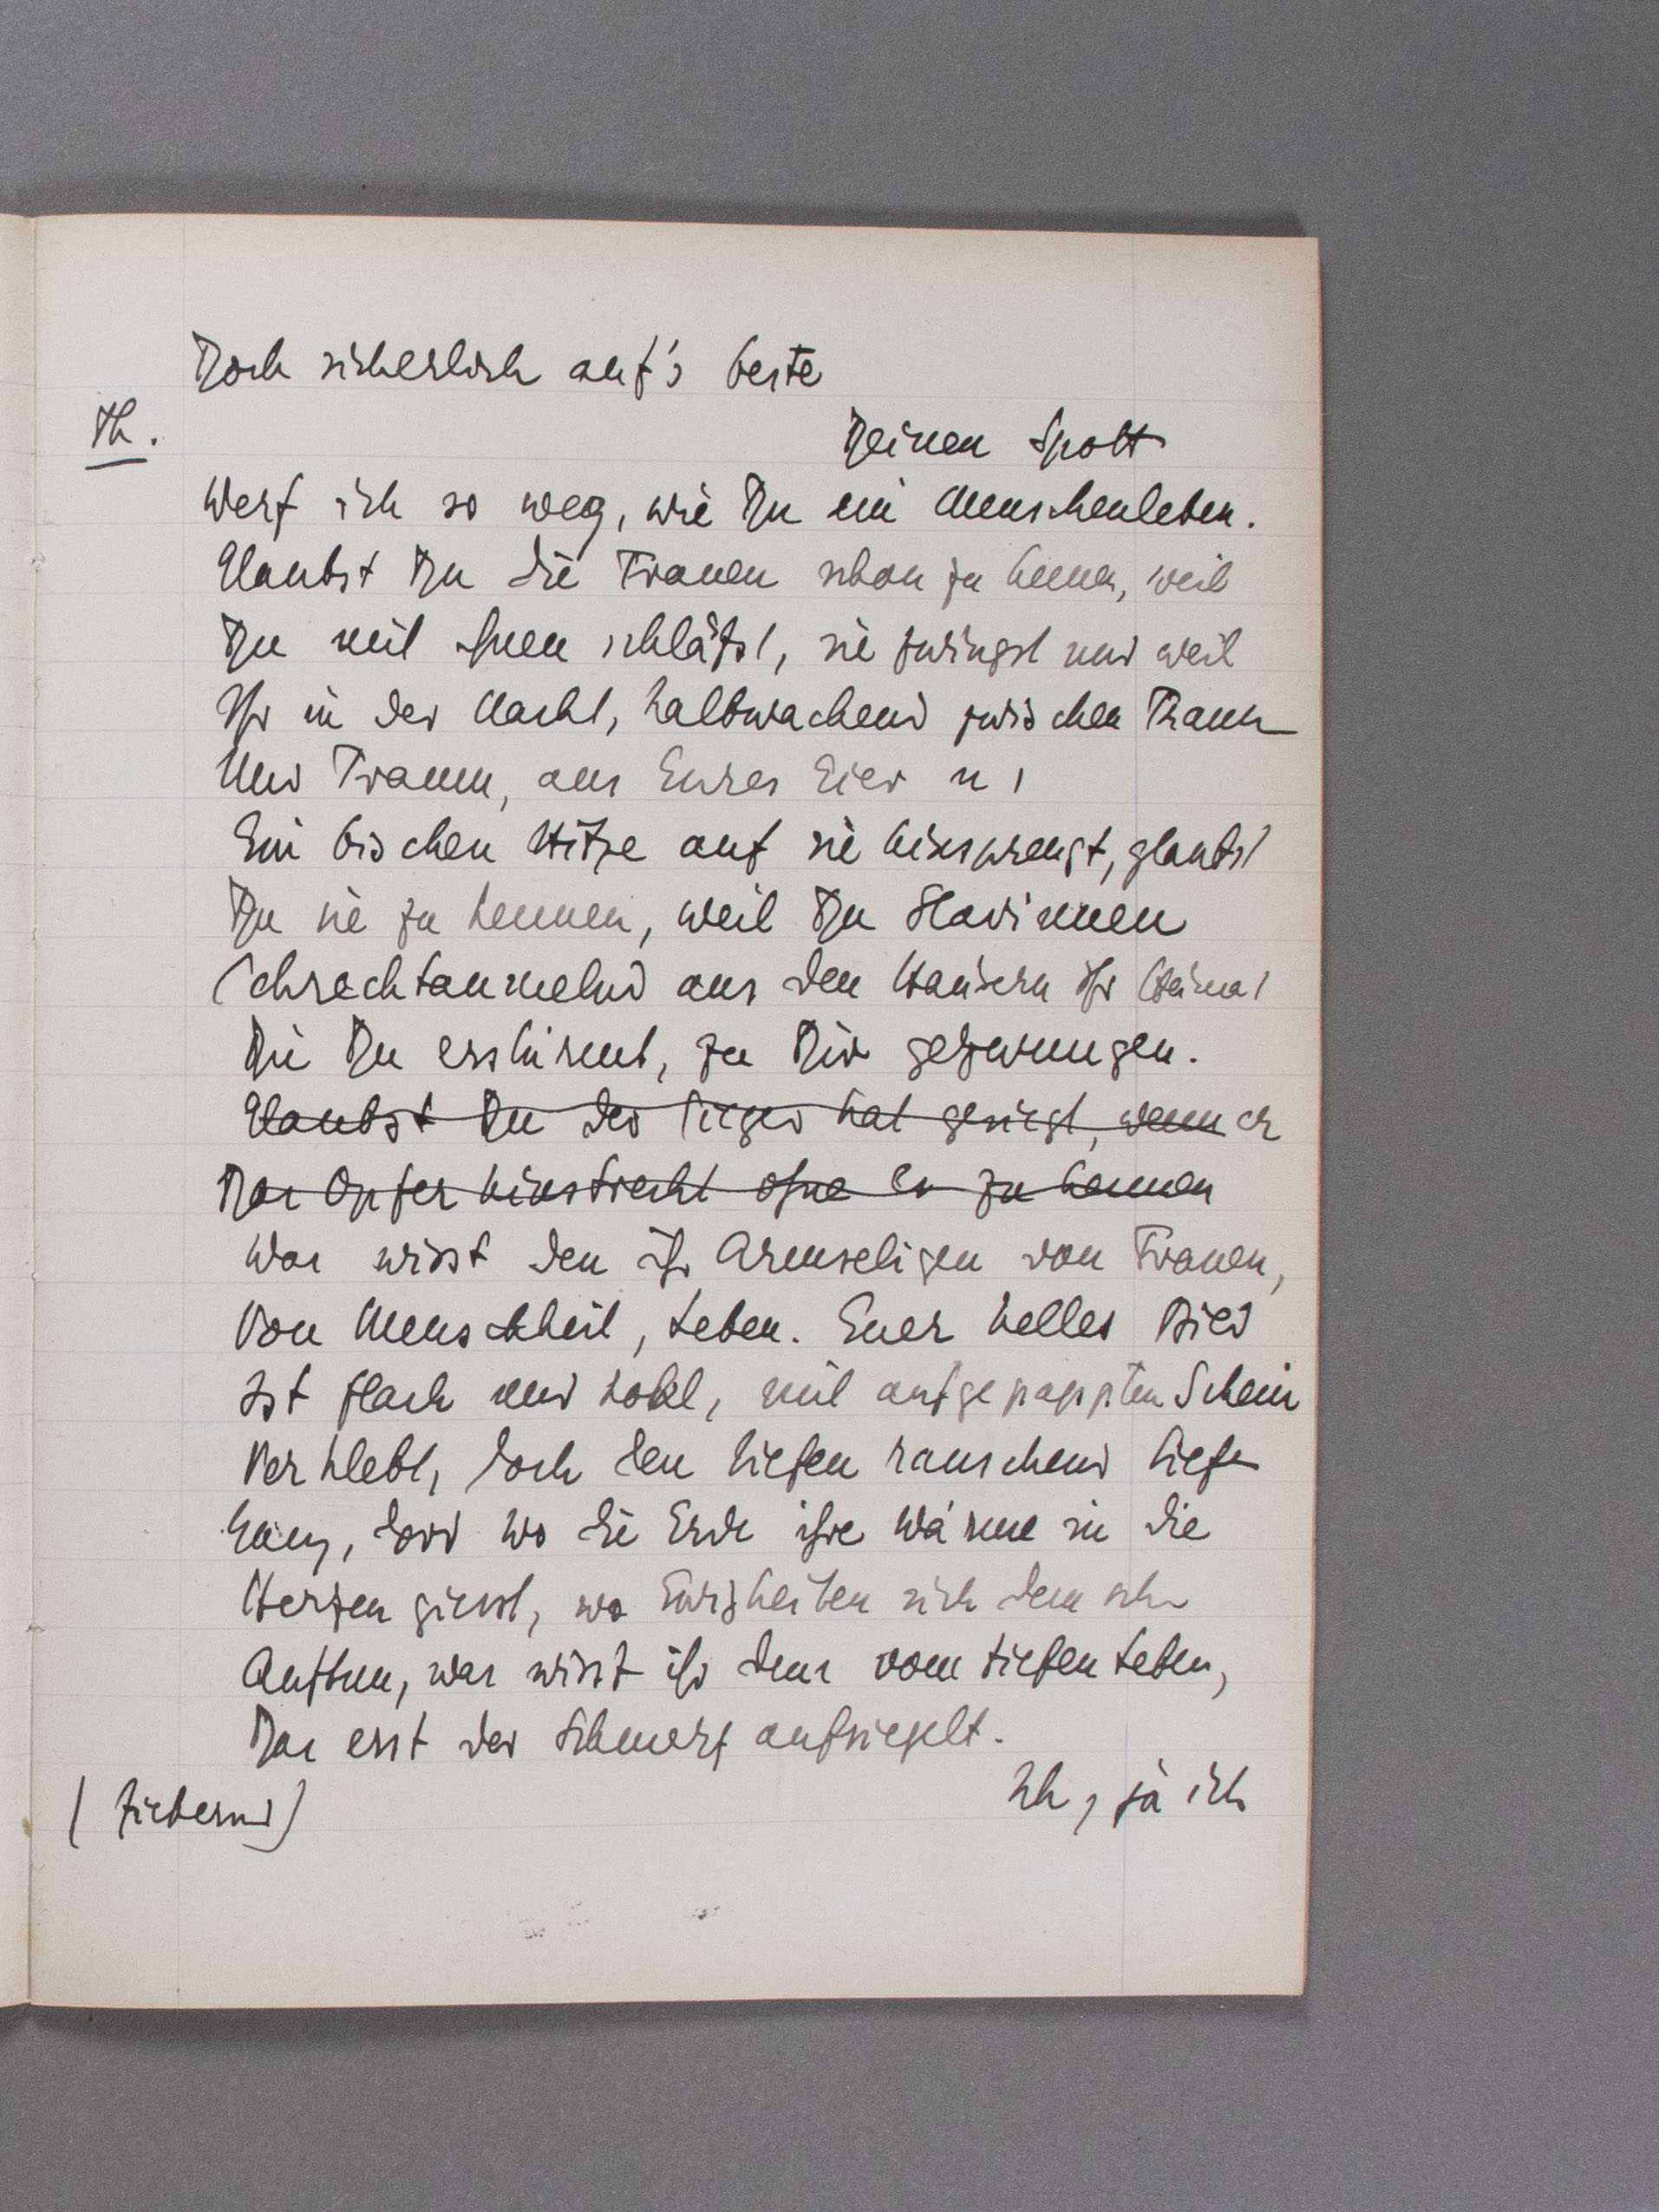 Doch sicherlich auf's beste
Th.
Deinen Spott
Werf ich so weg, wie Du ein Menschenleben.
Glaubst Du die Frauen schon zu kennen, weil
Du mit ihnen schläfst, sie zwingst und weil
Ihr in der Nacht, halbwachend zwischen Trank
Und Traum, aus Eurer Gier
Ein bischen Hitze auf sie hinsprengt, glaubst
Du sie zu kennen, weil Du Sklavinnen
Schrecktaumelnd aus den Häusern ihr Heimat
Die Du erstürmt, zu Dir gezwungen.
Glaubst Du der Sieger hat gesiegt, wenn er
Das Opfer hinstreckt ohne es zu kennen
Was wisst den ihr Armseligen von Frauen,
Von Menschheit, Leben. Euer helles Lied
Ist flach und hohl, mit aufgepappten Schein
Verklebt, doch den tiefen rauschend tiefen
dord wo die Erde ihre Wärme in die
Herzen giesst, wo Ewigkeiten sich dem
Auftun, was wisst ihr denn vom tiefen Leben,
Das erst der Schmerz aufsiegelt.
Ich, ja ich
(fiebernd)